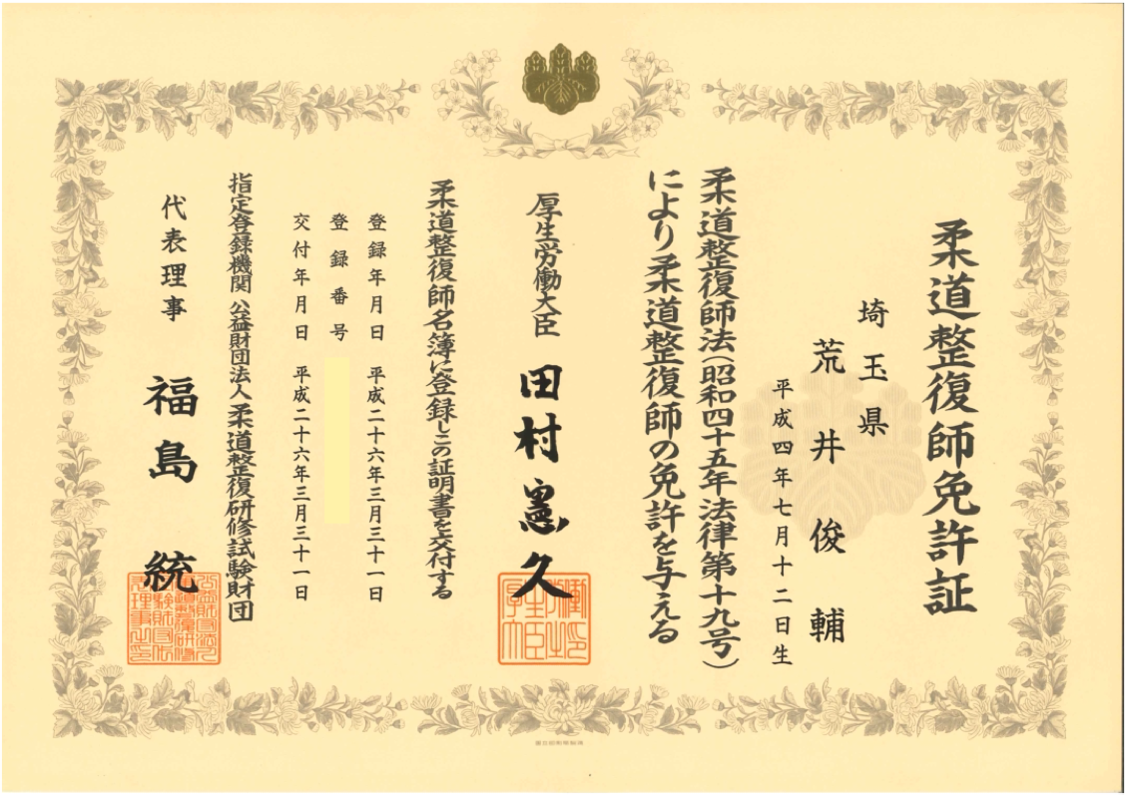 柔道整復師免許証
埼玉県
荒井俊輔
平成四年七月十二日生
柔道整復師法(昭和四十五年法律第十九号)
により柔道整復師の免許を与える
厚生労働大臣 田村憲久
柔道整復師名簿に登録しこの証明書を交付する
登録年月日 平成二十六年三月三十一日
登録番号
交付年月日 平成二十六年三月三十一日
指定登録機関 公益財団法人 柔道整復研修試験財団
代表理事 福島統